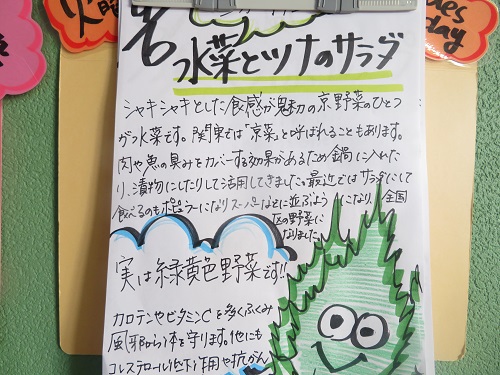 火曜
ues
day
水菜とツナのサラダ
シャキシャキとした食感が魅力の京野菜のひとつ
が水菜です。関東では「京菜」と呼ばれることもあります。
肉や魚の臭みをカバーする効果があるため鍋に入れた
り、漬物にしたりして活用してきました。最近ではサラダにして
食べるのもポピュラーになりスーパーなどに並ぶようになり、全国
区の野菜に
なりました。
実は緑黄色野菜です!!
カロテンやビタミンCを多くふくみ
風邪から体を守ります。他にも
コレステロール低下作用や抗がん